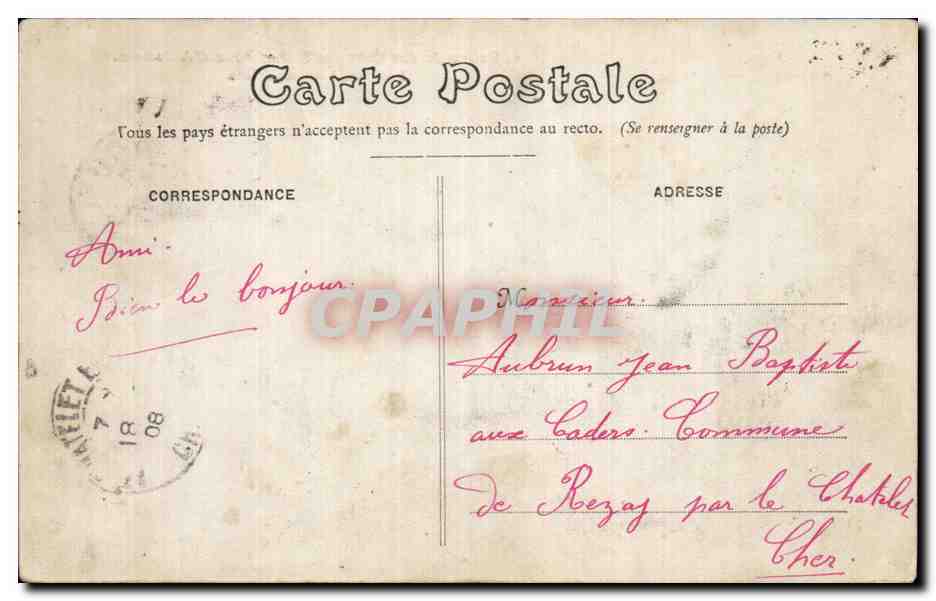 Carte Postale
Tous les pays étrangers n'acceptent pas la correspondance au recto. (Se renseigner à la poste)
CORRESPONDANCE
ADRESSE
Ami.
Bien le bonjour.
CPAPHIL
Monsieur.
Aubrun Jean Baptiste
aux Caders. Commune
de Rezay par le Chatelet
Cher.
HATELET
7
18
08
CH